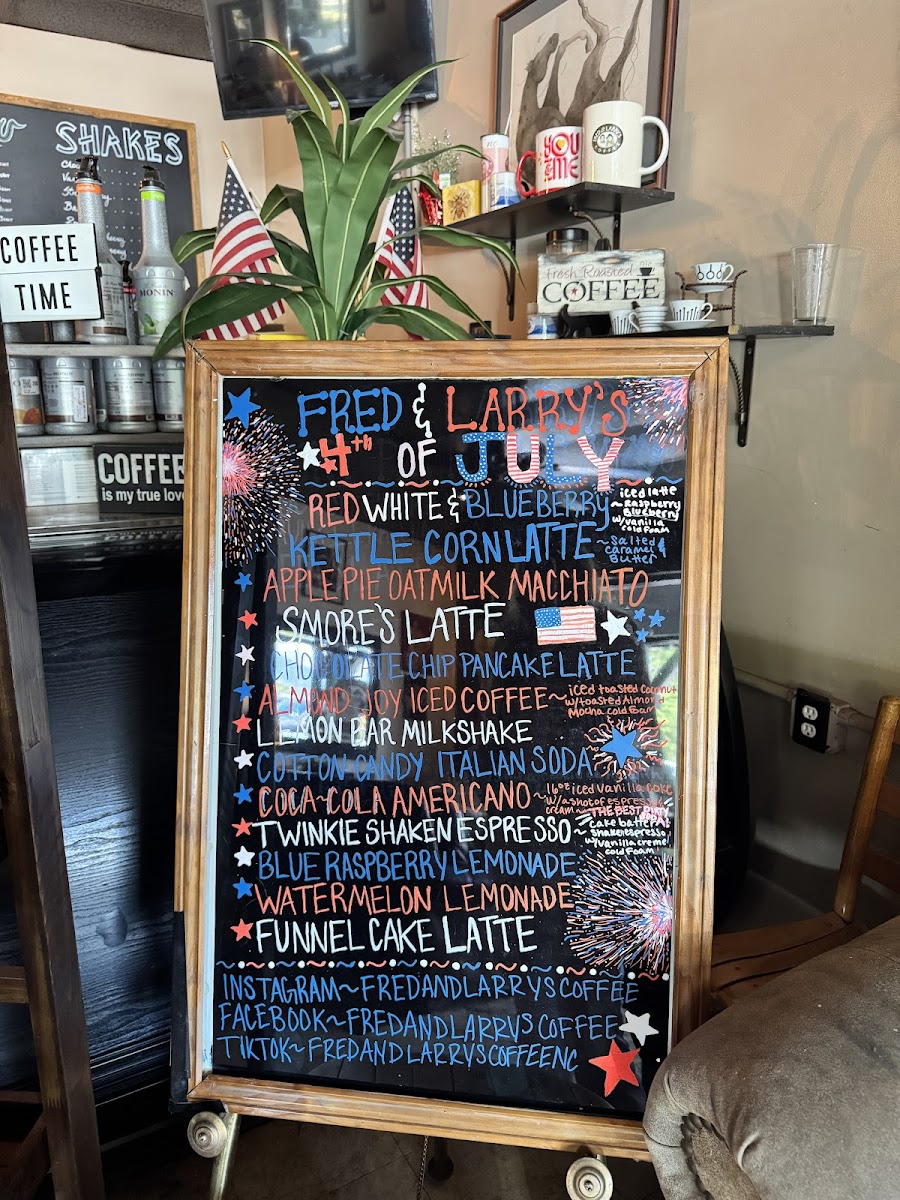 SHAKES
COFFEE
TIME
MONIN
YOU
ME
Fresh Roasted
COFFEE
COFFEE
is my true love
FRED & LARRY'S
4TH OF JULY
RED WHITE & BLUEBERRY ~ iced latte
Raspberry
Blueberry
w/vanilla
cold foam
KETTLE CORN LATTE ~ salted
caramel &
Butter
APPLE PIE OATMILK MACCHIATO
SMORE'S LATTE
CHOCOLATE CHIP PANCAKE LATTE
ALMOND JOY ICED COFFEE ~ iced toasted coconut
w/toasted Almond
Mocha cold foam
LEMON BAR MILKSHAKE
COTTON CANDY ITALIAN SODA
COCA~COLA AMERICANO ~ 16oz iced vanilla coke
w/a shot of espresso
cream ~ THE BEST DIRTY
TWINKIE SHAKEN ESPRESSO ~ cake batter
shaken espresso
w/vanilla creme
cold foam
BLUE RASPBERRY LEMONADE
WATERMELON LEMONADE
FUNNEL CAKE LATTE
INSTAGRAM~FREDANDLARRYSCOFFEE
FACEBOOK~FREDANDLARRYSCOFFEE
TIKTOK~FREDANDLARRYSCOFFEENC